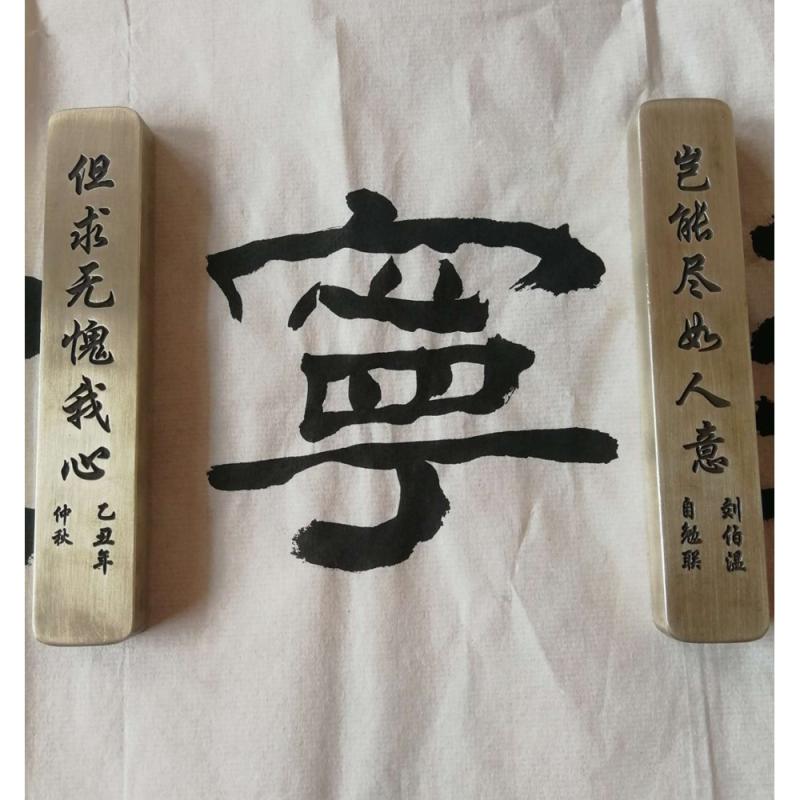 岂能尽如人意
刘伯温
自勉联
寧
但求无愧我心
乙丑年
仲秋